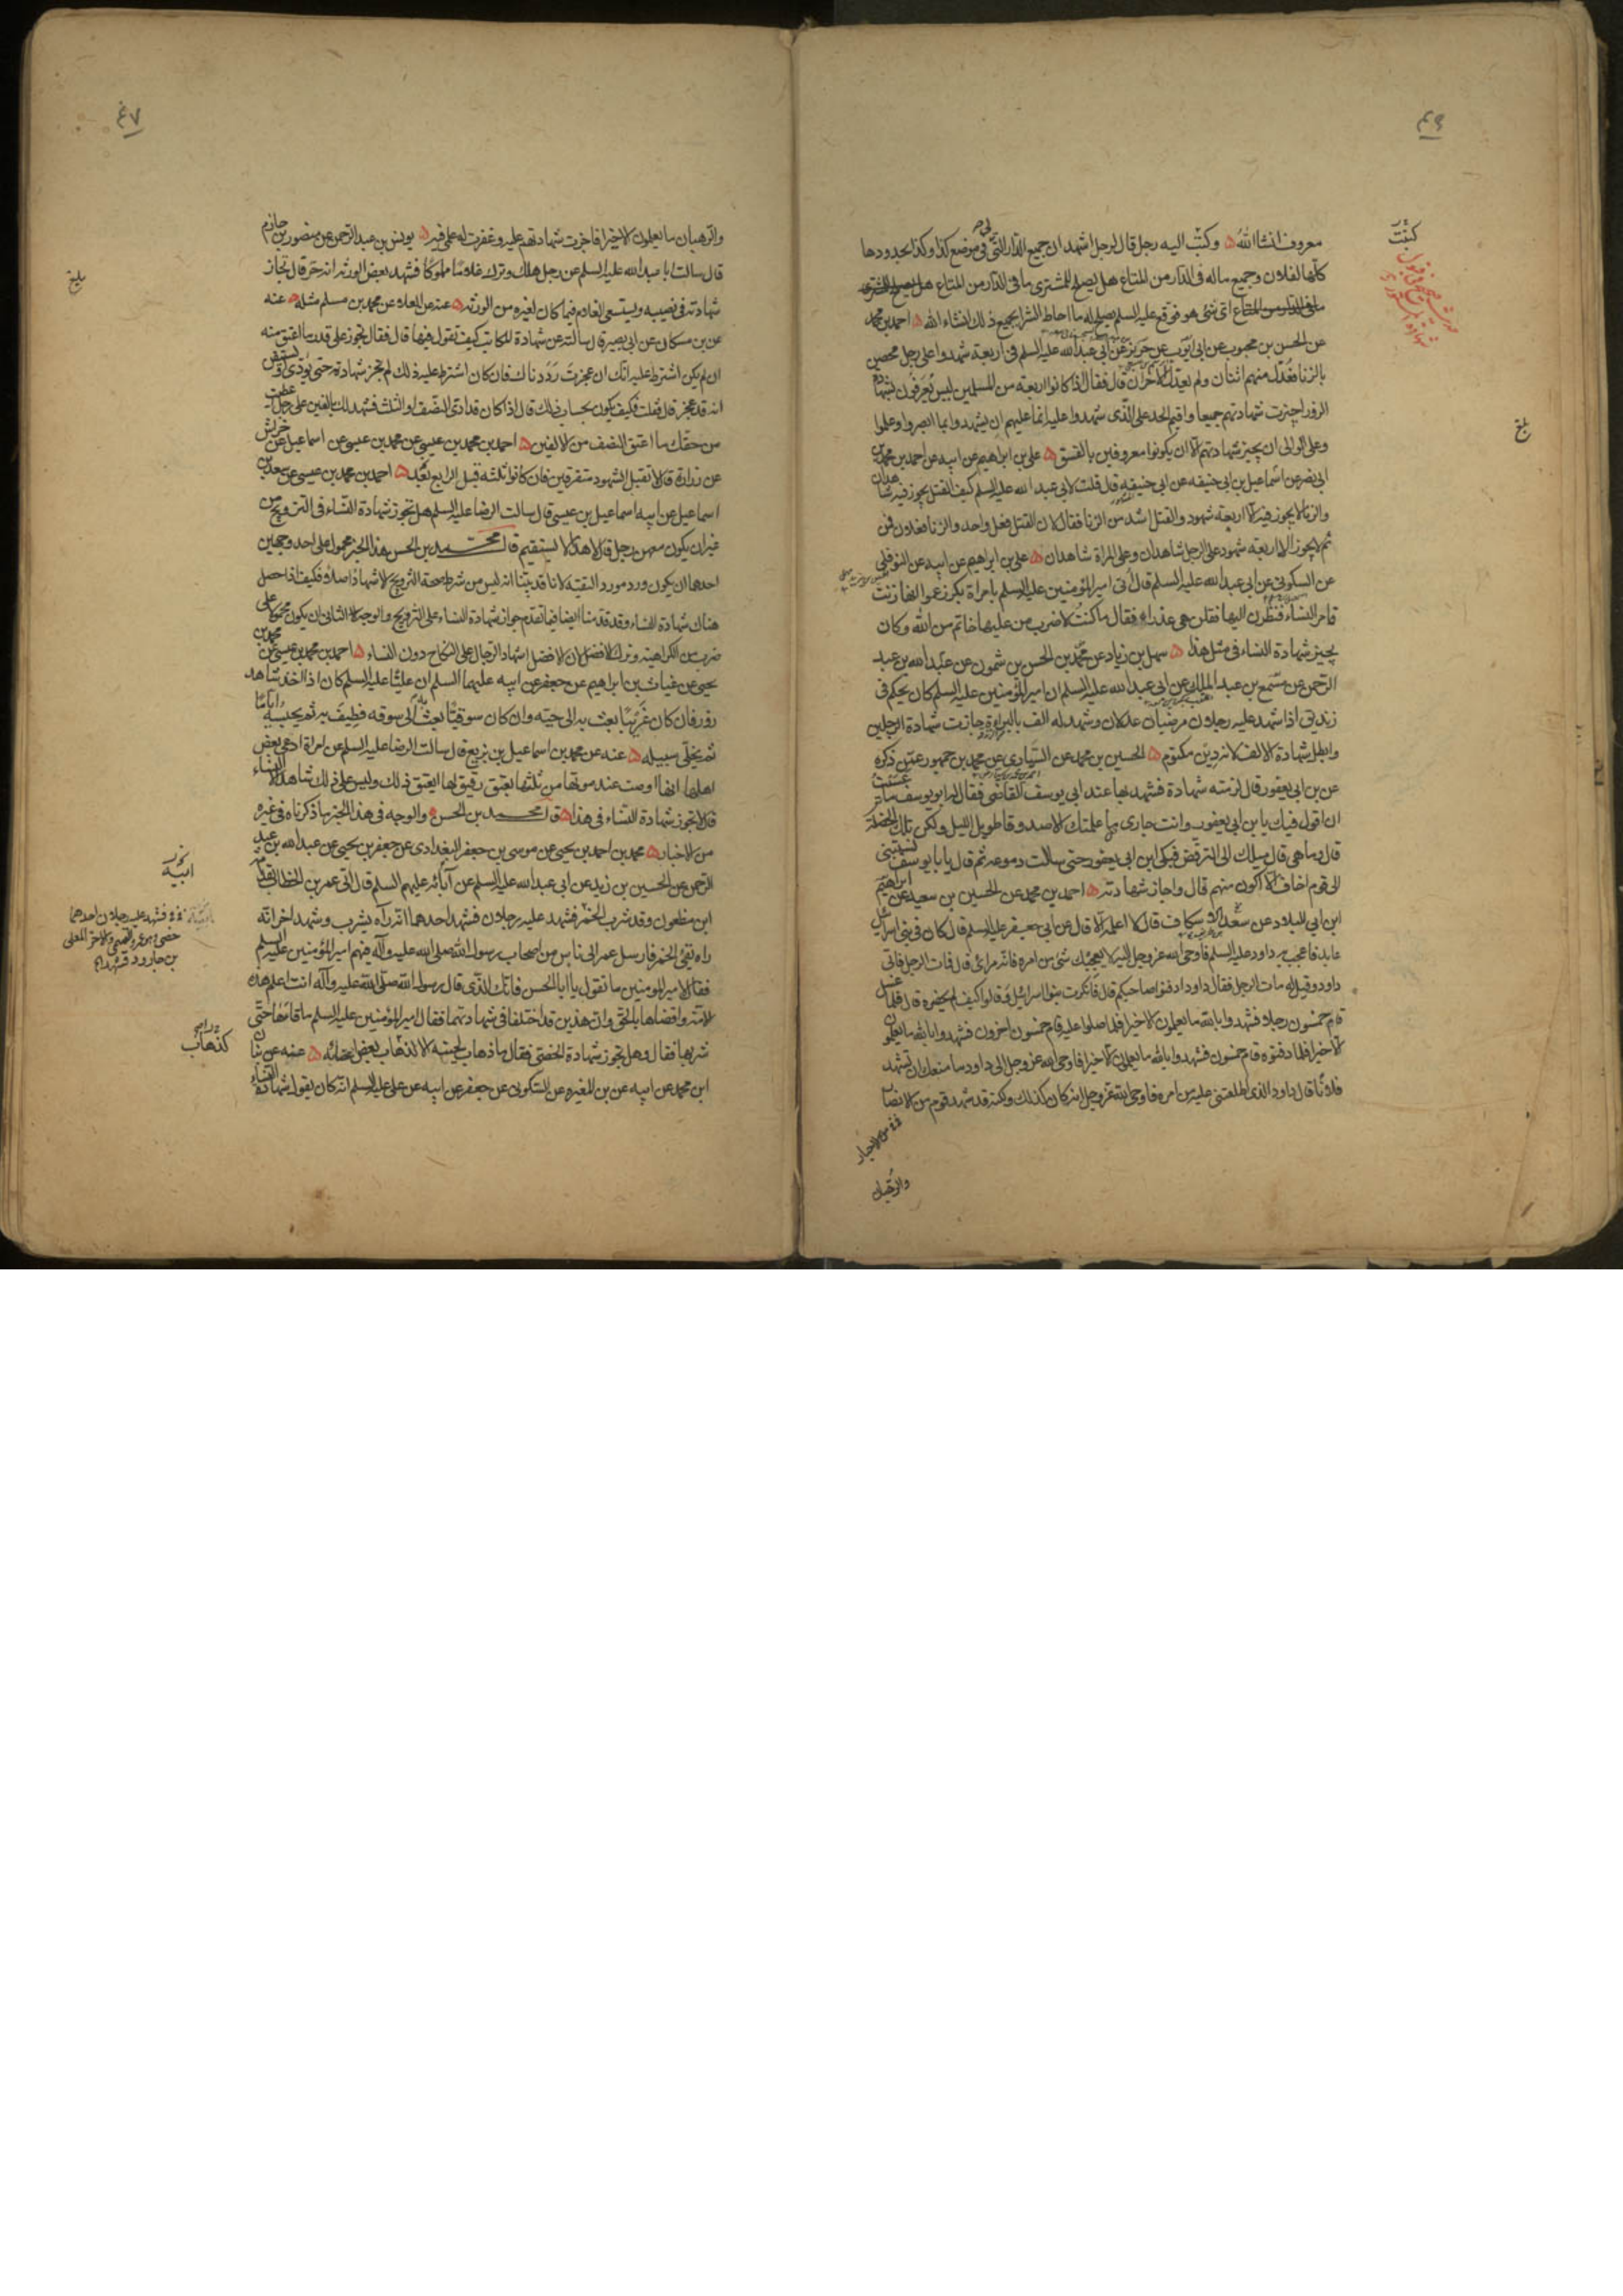 ۴۶
معروف انشاالله وكتب اليه رجل قال لرجل اشهد ان جميع الدار التي في موضع كذا وكذا بحدودها
كلها لفلان وجميع ماله في الدار من المتاع هل يصلح للمشترى ما في الدار من المتاع
اي شئ هو فوقع عليه السلم يصلح له ما احاط الشرا بجميع ذلك انشاء الله احمد بن محمد
عن الحسن بن محبوب عن ابى ايوب عن حريز عن ابى عبد الله عليه السلم في اربعة شهدوا على رجل محصن
بالزنا فعدل منهم اثنان ولم يعدل الاخران قال فقال اذا كانوا اربعة من المسلمين ليس يعرفون بشهادة
الزور اجيزت شهادتهم جميعا واقيم الحد على الذي شهدوا عليه انما عليهم ان يشهدوا بما ابصروا وعلموا
وعلى الوالي ان يجيز شهادتهم الا ان يكونوا معروفين بالفسق على بن ابراهيم عن ابيه عن احمد بن محمد بن
ابى نصر عن اسماعيل بن ابى حنيفه عن ابى حنيفه قال قلت لابى عبد الله عليه السلم كيف القتل يجوز فيه شاهدان
والزنا لا يجوز فيه الا اربعة شهود والقتل اشد من الزنا فقال لان القتل فعل واحد والزنا فعلان فمن
ثم لا يجوز الا اربعة شهود على الرجل شاهدان وعلى المراة شاهدان على بن ابراهيم عن ابيه عن النوفلى
عن السكونى عن ابى عبد الله عليه السلم قال اتى امير المؤمنين عليه السلم بامراة بكر زعموا انها زنت
فامر النساء فنظرن اليها فقلن هى عذراء فقال ما كنت لاضرب من عليها خاتم من الله وكان
يجيز شهادة النساء في مثل هذا سهل بن زياد عن محمد بن الحسن بن شمون عن عبد الله بن عبد
الرحمن عن مسمع بن عبد الملك عن ابى عبد الله عليه السلم ان امير المؤمنين عليه السلم كان يحكم في
زنديق اذا شهد عليه رجلان مرضيان عدلان وشهد له الف بالبراءة جازت شهادة الرجلين
وابطل شهادة الالف لانه دين مكتوم الحسين بن محمد عن السيارى عن محمد بن جمهور عمن ذكره
عن بن ابى يعفور قال لزمته شهادة فشهد بها عند ابى يوسف القاضى فقال ابو يوسف ما عسيت
ان اقول فيك يا بن ابى يعفور وانت جارى ما علمتك الا صدوقا طويل الليل ولكن تلك الخصلة
قال وما هى قال ميلك الى الترفض فبكى ابن ابى يعفور حتى سالت دموعه ثم قال يا با يوسف تنسبنى
الى قوم اخاف الا اكون منهم قال واجاز شهادته احمد بن محمد عن الحسين بن سعيد عن ابراهيم
ابن ابى البلاد عن سعد الاسكاف قال لا اعلمه الا قال عن ابى جعفر عليه السلم قال كان فى بنى اسرائيل
عابد فاعجب به داود عليه السلم فاوحى الله عز وجل اليه لا يعجبك شئ من امره فانه مرائى قال فمات الرجل فاتى
داود وقيل له مات الرجل فقال داود ادفنوا صاحبكم قال فانكرت بنوا اسرائيل وقالوا كيف لم يحضره قال فلما غسل
قام خمسون رجلا فشهدوا بالله ما يعلمون الا خيرا فلما صلوا عليه قام خمسون اخرون فشهدوا بالله ما يعلمون
الا خيرا فلما دفنوه قام خمسون فشهدوا بالله ما يعلمون الا خيرا فاوحى الله عز وجل الى داود ما منعك ان تشهد
فلانا قال داود الذى اطلعتنى عليه من امره فاوحى الله عز وجل انه كان كذلك ولكنه قد شهد قوم من
الاحبار
والرهبان
كتبت
بلغ
۴۷
والرهبان ما يعلمون الا خيرا فاجزت شهادتهم عليه وغفرت له علمى فيه يونس بن عبد الرحمن عن منصور بن حازم
قال سالت ابا عبد الله عليه السلم عن رجل هلك وترك غلاما مملوكا فشهد بعض الورثة انه حر قال تجاز
شهادته في نصيبه ويستسعى الغلام فيما كان لغيره من الورثه عنه عن العلاء عن محمد بن مسلم مثله عنه
عن بن مسكان عن ابى بصير قال سالته عن شهادة المكاتب كيف تقول فيها قال فقال تجوز على قدر ما اعتق منه
ان لم يكن اشترط عليه انك ان عجزت رددناك فان كان اشترط عليه ذلك لم تجز شهادته حتى يؤدى او يستيقن
انه قد عجز قال فقلت فكيف يكون بحساب ذلك قال اذا كان قد ادى النصف او الثلث فشهد لك بالفين على رجل اعطيت
من حقك ما اعتق النصف من الالفين احمد بن محمد بن عيسى عن محمد بن عيسى عن اسماعيل بن خراش
عن زرارة قال لا تقبل الشهود متفرقين فان كانوا ثلثه قبل الرابع بعد احمد بن محمد بن عيسى عن سعد بن
اسماعيل عن ابيه اسماعيل بن عيسى قال سالت الرضا عليه السلم هل تجوز شهادة النساء في التزويج من
غير ان يكون معهن رجل قال لا هذا لا يستقيم قال محمد بن الحسن هذا الخبر محمول على احد وجهين
احدهما ان يكون ورد مورد التقيه لانا قد بينا انه ليس من شرط صحة التزويج الاشهاد اصلا فكيف اذا حصل
هناك شهادة النساء وقد قدمنا ايضا فيما تقدم جواز شهادة النساء على التزويج والوجه الثانى ان يكون محمولا على
ضرب من الكراهية وترك الافضل لان الافضل اشهاد الرجال على النكاح دون النساء احمد بن محمد بن عيسى عن محمد بن
يحيى عن غياث بن ابراهيم عن جعفر عن ابيه عليهما السلم ان عليا عليه السلم كان اذا اخذ شاهد
زور فان كان غريبا بعث به الى حيه وان كان سوقيا بعث به الى سوقه فطيف به ثم يحبسه اياما
ثم يخلى سبيله عنه عن محمد بن اسماعيل بن بزيع قال سالت الرضا عليه السلم عن امراة ادعى بعض
اهلها انها اوصت عند موتها من ثلثها بعتق رقيق لها ايعتق ذلك وليس على ذلك شاهد الا النساء
قال لا تجوز شهادة النساء في هذا قال محمد بن الحسن والوجه فى هذا الخبر ما ذكرناه فى غيره
من الاخبار محمد بن احمد بن يحيى عن موسى بن جعفر البغدادى عن جعفر بن يحيى عن عبد الله بن عبد
الرحمن عن الحسين بن زيد عن ابى عبد الله عليه السلم عن آبائه عليهم السلم قال اتى عمر بن الخطاب بقدامة
ابن مظعون وقد شرب الخمر فشهد عليه رجلان فشهد احدهما انه رآه يشرب وشهد اخر انه
راه يقئ الخمر فارسل عمر الى ناس من اصحاب رسول الله صلى الله عليه وآله فيهم امير المؤمنين عليه السلم
فقال لامير المؤمنين ما تقول يا ابا الحسن فانك الذى قال رسول الله صلى الله عليه وآله انت اعلم هذه
الامة واقضاها بالحق وان هذين قد اختلفا فى شهادتهما فقال امير المؤمنين عليه السلم ما قاءها حتى
شربها فقال وهل تجوز شهادة الخصى فقال ما ذهاب لحيته الا كذهاب بعض اعضائه عنه عن بنان
ابن محمد عن ابيه عن بن المغيره عن السكونى عن جعفر عن ابيه عن على عليه السلم انه كان يقول شهادة النساء
بلغ
فشهد عليه رجلان احدهما
خصى وهو عمرو التميمى والاخر المعلى
بن جارود فشهد احدهما
كذهاب